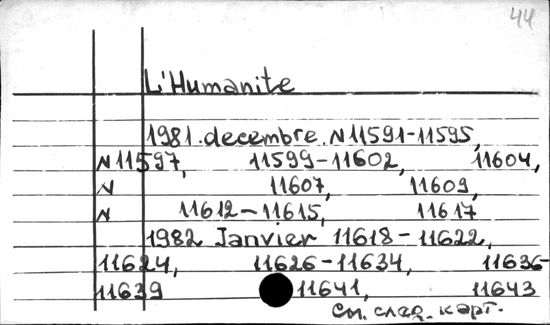 44
L'Humanite
1981. decembre. N11591-11595,
N11597, 11599-11602, 11604,
N 11607, 11609,
N 11612-11615, 11617
1982 Janvier 11618-11622,
11624, 11626-11634, 11636-
11639 11641, 11643
См. след. карт.